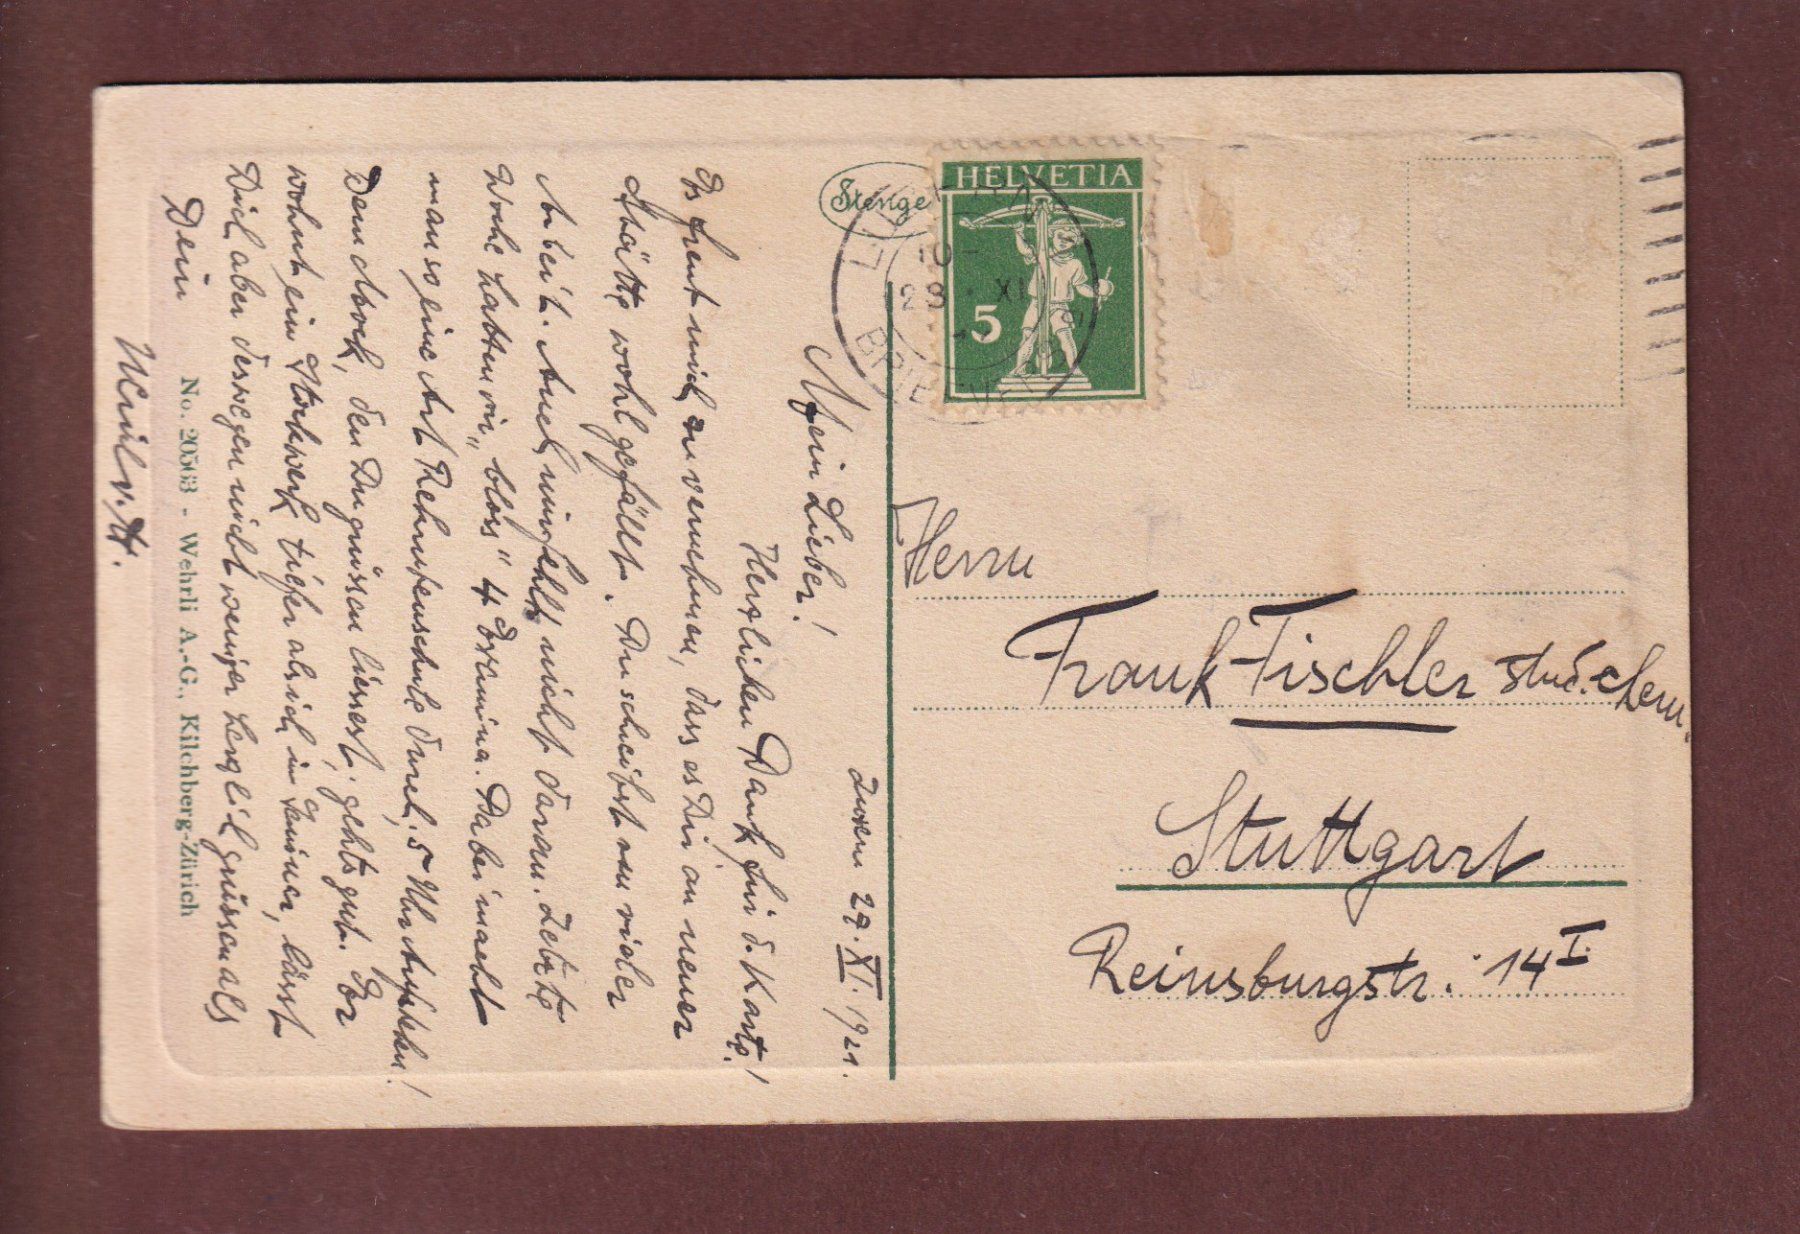 Luzern 29. XI. 1921.
Mein Lieber!
Herzlichen Dank für d. Karte!
Es freut mich zu vernehmen, dass es Dir an neuer
Stätte wohl gefällt. Du scheibst zu vieler
Arbeit. Auch mir fehlt nicht daran. Letzte
Woche hatten wir „bloss" 4 Examina. Dabei macht
man so eine Art Rekrutenschule durch, 5 Uhr Aufstehen!
Dem, den Du grüssen liessest, gehts gut. Er
wohnt ein Stockwerk tiefer als ich, lässt
Dich aber deswegen nicht weniger herzlich grüssen als
Dein
No. 20503 - Wehrli A.-G., Kilchberg-Zürich
Stenge
HELVETIA
5
10-
XI
Herrn
Frank Fischler stud. chem.
Stuttgart
Reinsburgstr. 14 I